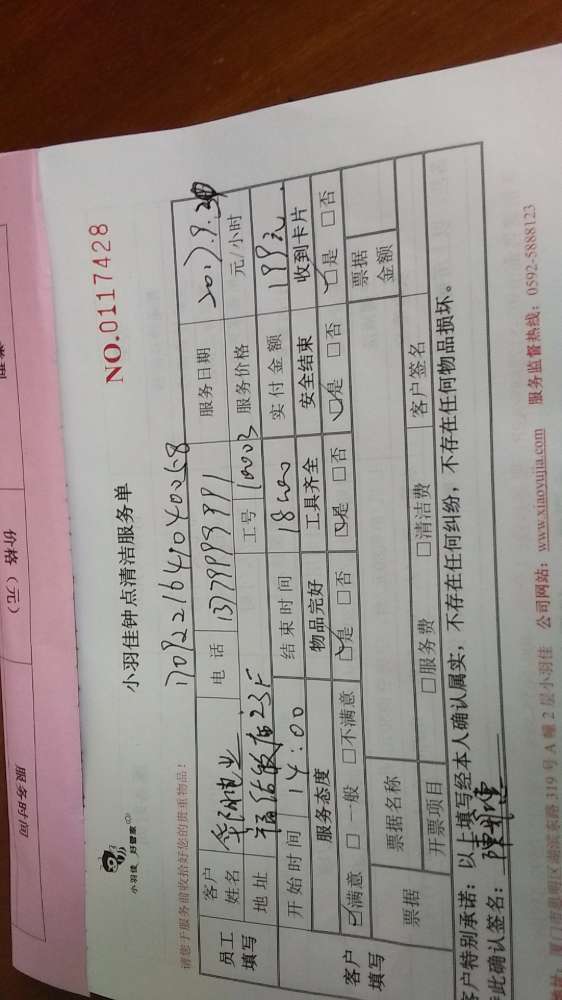 NO.0117428
小羽佳钟点清洁服务单
小羽佳 好管家
请您于服务前收拾好您的贵重物品!
1709221649040058
员工填写
客户姓名
电话 13779999991
服务日期 2017.9.24
地址 23F
工号 10003
服务价格 元/小时
开始时间 14:00
结束时间 18:00
实付金额 199元
客户填写
服务态度 物品完好 工具齐全 安全结束 收到卡片
☑满意 □一般 □不满意 ☑是 □否 ☑是 □否 ☑是 □否 ☑是 □否
票据 票据名称 票据金额
开票项目 □服务费 □清洁费 客户签名
客户特别承诺:以上填写经本人确认属实,不存在任何纠纷,不存在任何物品损坏。
此确认签名:
地址:厦门市思明区湖滨东路319号A幢2层小羽佳 公司网站:www.xiaoyujia.com 服务监督热线:0592-5888123
类型
价格(元)
服务时间